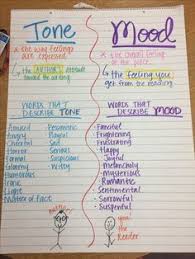 Tone
Mood
the way feelings
are expressed
the AUTHOR'S attitude
toward the writing
the overall feeling
of the piece
the feeling you
get from the reading
WORDS THAT
DESCRIBE TONE
WORDS THAT
DESCRIBE MOOD
Amused
Angry
Cheerful
Horror
Formal
Gloomy
Humorous
Ironic
Light
Matter of Fact
Pessimistic
Playful
Sad
Serious
Suspicious
Witty
Fanciful
Frightening
Frustrating
Happy
Joyful
Melancholy
Mysterious
Romantic
Sentimental
Sorrowful
Suspenseful
author
you!
the Reader